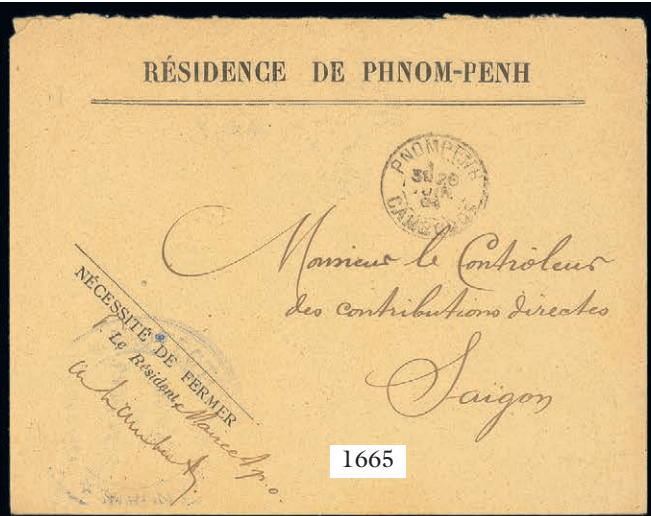 RÉSIDENCE DE PHNOM-PENH
PNOMPENH
3E 26
JUIN
04
CAMBODGE
Monsieur le Contrôleur
des contributions directes
Saïgon
NÉCESSITÉ DE FERMER
Le Résident
1665